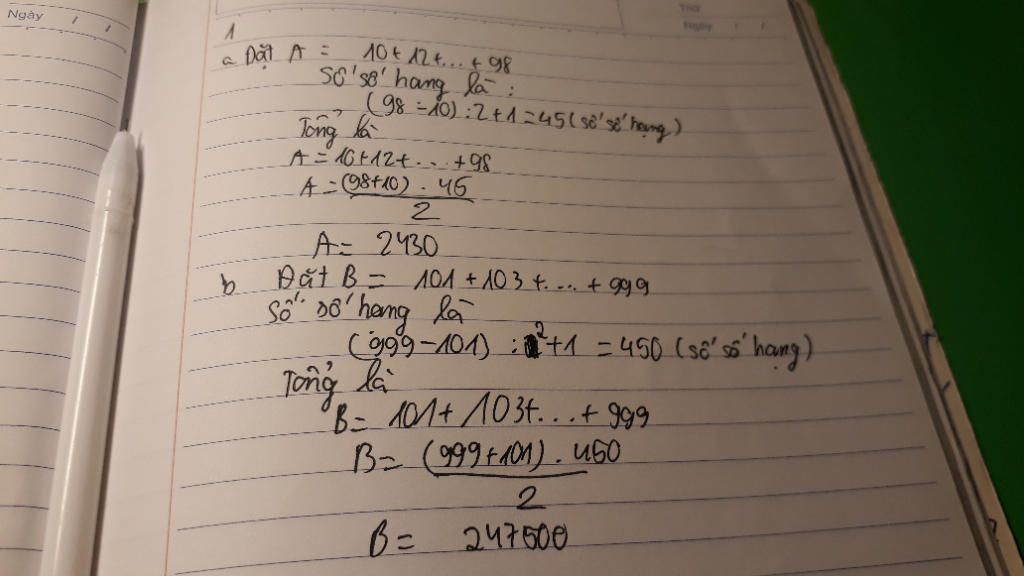 Ngày / /
Thứ
Ngày
1
a Đặt A = 10+12+...+98
Số số hang là :
(98-10):2+1=45(số số hạng)
Tổng là
A=10+12+...+98
A=(98+10).45
2
A= 2430
b Đặt B = 101+103+...+999
Số số hang là
(999-101) : 2+1 =450 (số số hạng)
Tổng là
B= 101+103+...+999
B= (999+101).450
2
B= 247500